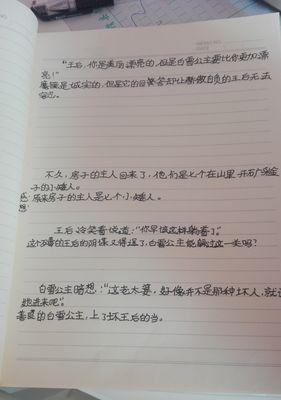 "王后，你是美丽漂亮的，但是白雪公主要比你更加漂
亮！"
魔镜是诚实的，但是它的回答却让骄傲自负的王后无法
容忍。
不久，房子的主人回来了，他们是七个在山里开矿采金
子的小矮人。
感：原来房子的主人是七个小矮人。
想：
王后冷笑着说道："你早该这样躺着了。"
这个恶毒的王后的阴谋又得逞了，白雪公主能躲过这一关吗？
白雪公主暗想："这老太婆，好像并不是那种坏人，就让
她进来吧。"
善良的白雪公主，上了坏王后的当。